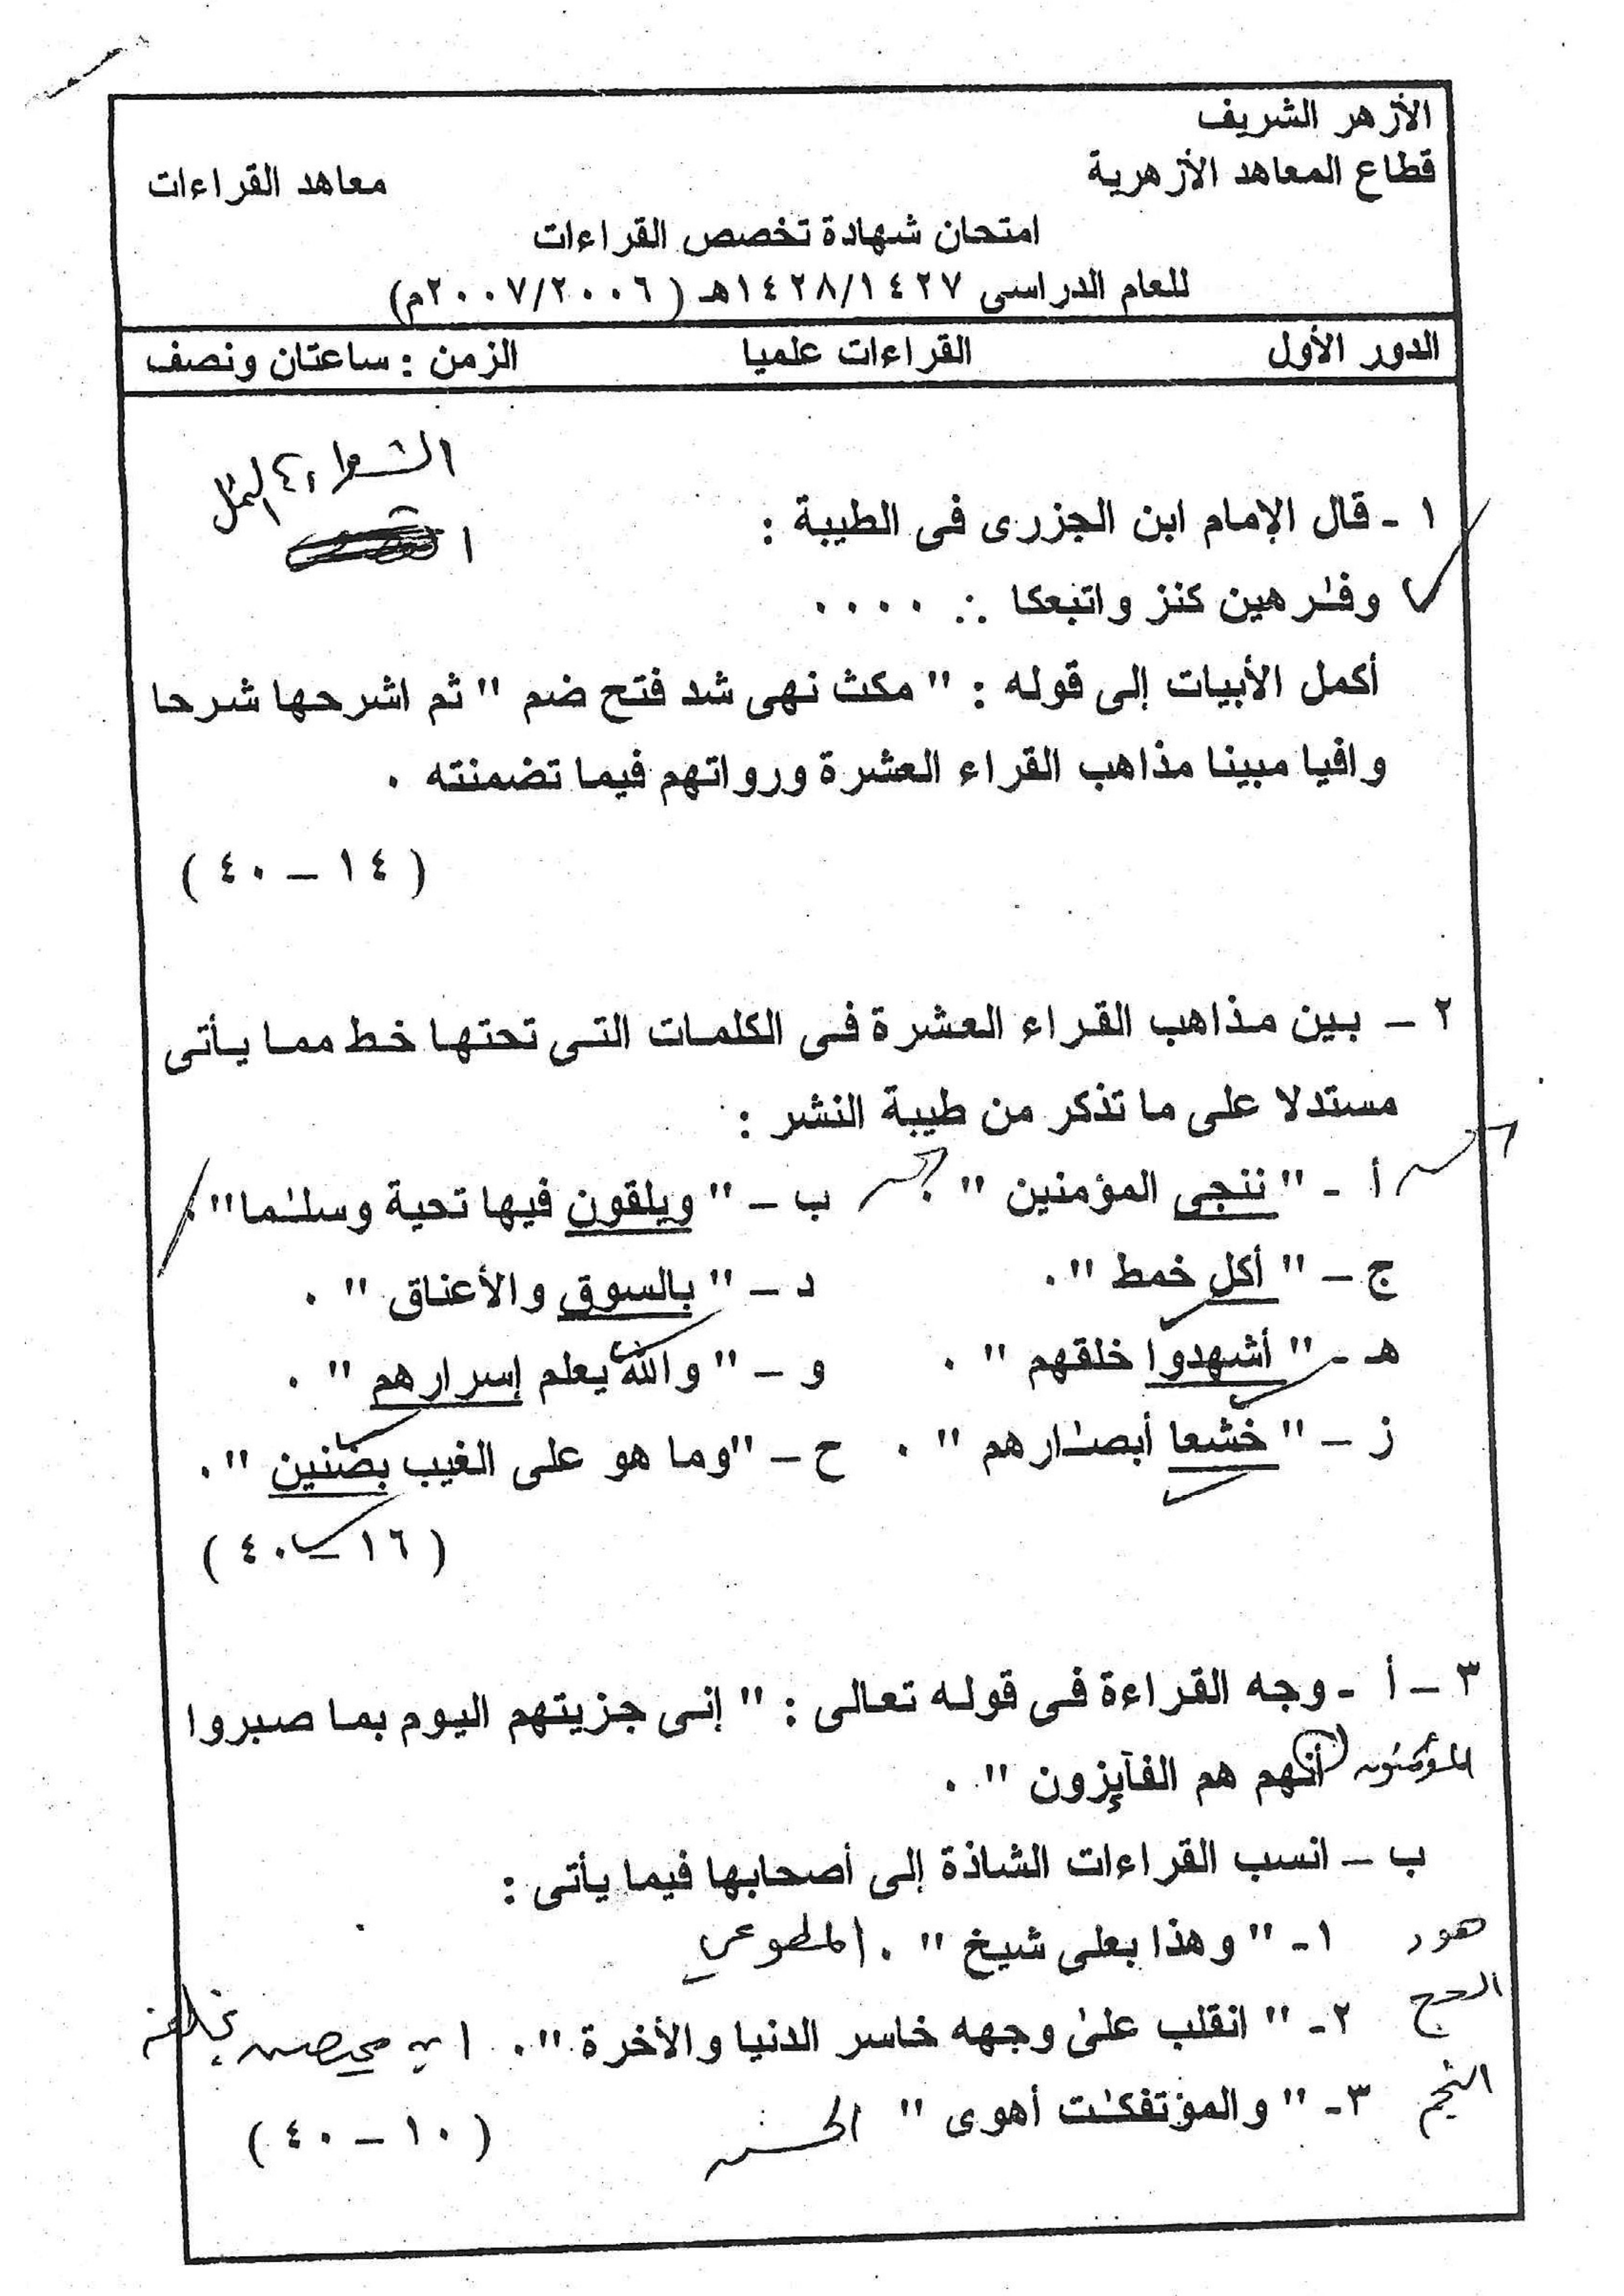 الأزهر الشريف
قطاع المعاهد الأزهرية
معاهد القراءات
امتحان شهادة تخصص القراءات
للعام الدراسى ١٤٢٨/١٤٢٧هـ ( ٢٠٠٧/٢٠٠٦م)
الدور الأول القراءات علميا الزمن : ساعتان ونصف
الشعراء، النمل
١ - قال الإمام ابن الجزرى فى الطيبة :
وفٰرهين كنز واتبعكا .:. ٠٠٠٠
أكمل الأبيات إلى قوله : " مكث نهى شد فتح ضم " ثم اشرحها شرحا
وافيا مبينا مذاهب القراء العشرة ورواتهم فيما تضمنته .
( ١٤ – ٤٠ )
٢ – بين مذاهب القراء العشرة فى الكلمات التى تحتها خط مما يأتى
مستدلا على ما تذكر من طيبة النشر :
أ - " ننجى المؤمنين " . ب – " ويلقون فيها تحية وسلٰما" .
ج – " أكل خمط ". د – " بالسوق والأعناق " .
هـ - " أشهدوا خلقهم " . و – " والله يعلم إسرارهم " .
ز – " خشعا أبصٰرهم " . ح – "وما هو على الغيب بضنين ".
( ١٦ – ٤٠ )
٣ – أ - وجه القراءة فى قوله تعالى : " إنى جزيتهم اليوم بما صبروا
المؤمنون أنهم هم الفآئزون " .
ب – انسب القراءات الشاذة إلى أصحابها فيما يأتى :
هود ١- " وهذا بعلى شيخ " . المطوعي
الحج ٢- " انقلب علىٰ وجهه خاسر الدنيا والأخرة ". ابن محيصن بخلفه
النجم ٣- " والمؤتفكٰت أهوى " الحسن
( ١٠ – ٤٠ )